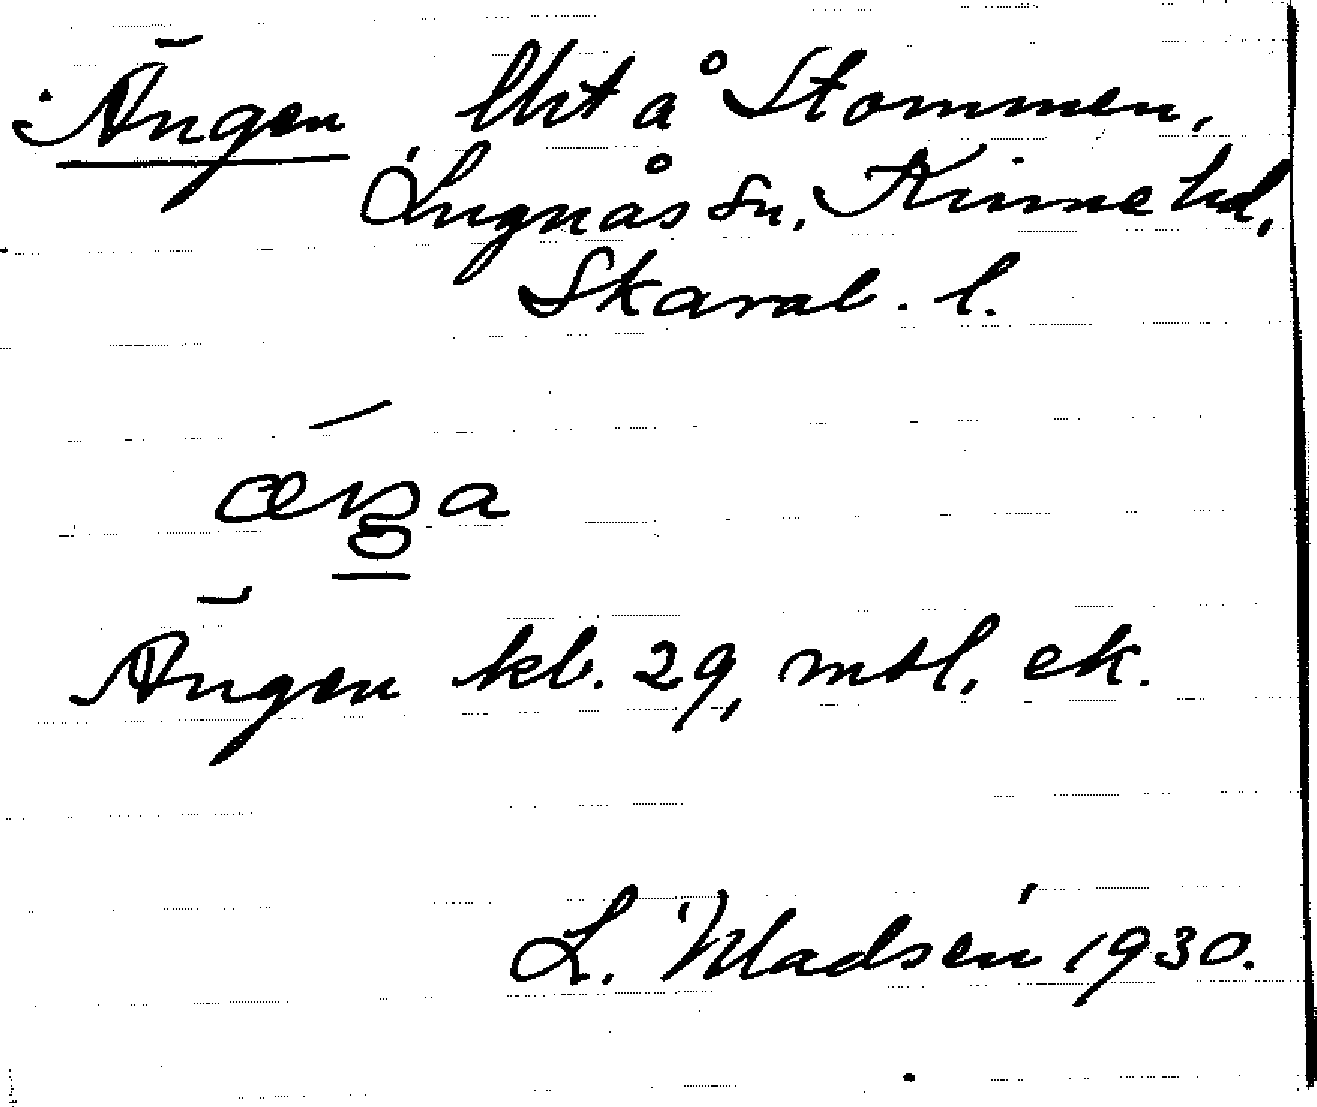 Ängen lht å Stommen,
Lugnås sn, Kinne hd,
Skarab. l.
Ängen kb. 29, mtl, ek.
L. Madsén 1930.